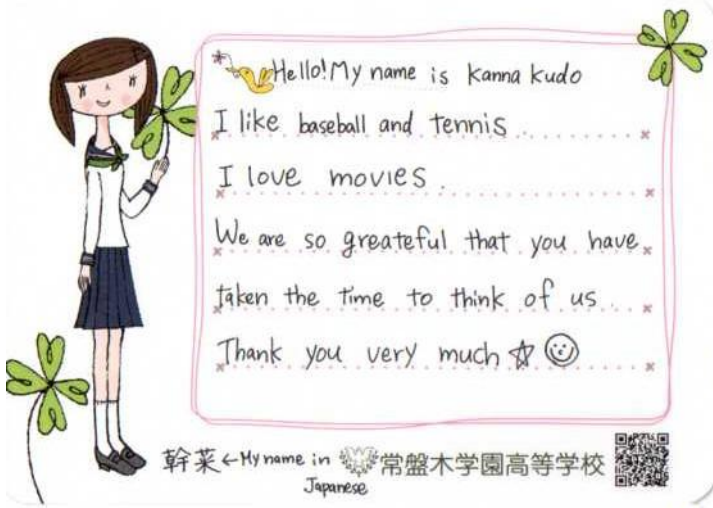 Hello! My name is Kanna Kudo
I like baseball and tennis
I love movies.
We are so greateful that you have
taken the time to think of us.
Thank you very much☆☺
幹菜←My name in
Japanese
常盤木学園高等学校